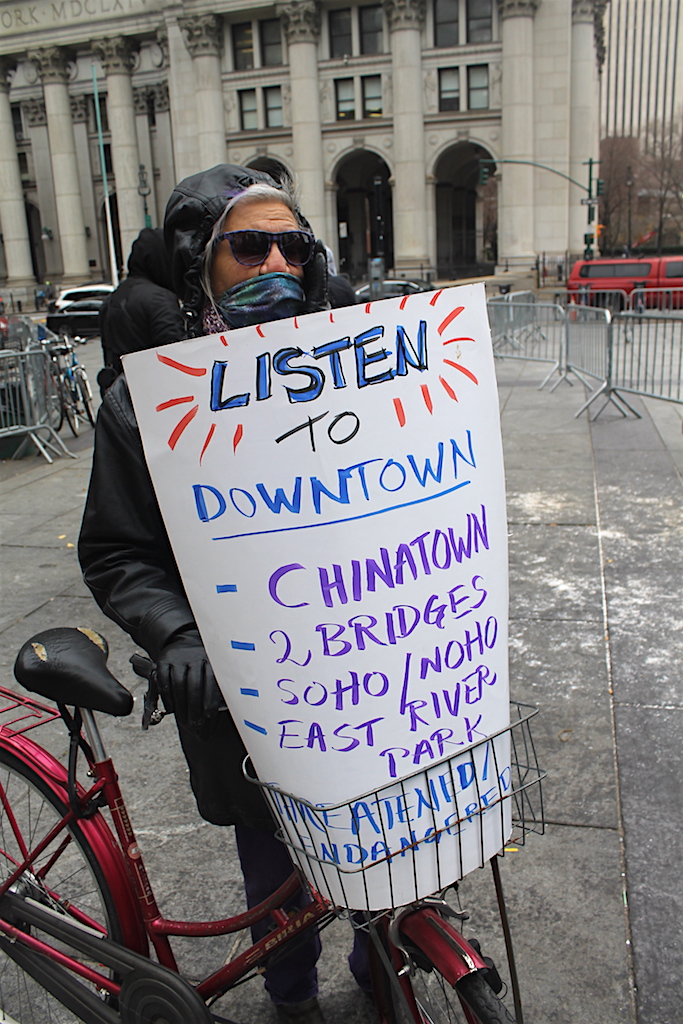 ORK · MDCLXIV
LISTEN
TO
DOWNTOWN
- CHINATOWN
- 2 BRIDGES
- SOHO/NOHO
- EAST RIVER
PARK
THREATENED/
ENDANGERED
BIRIA